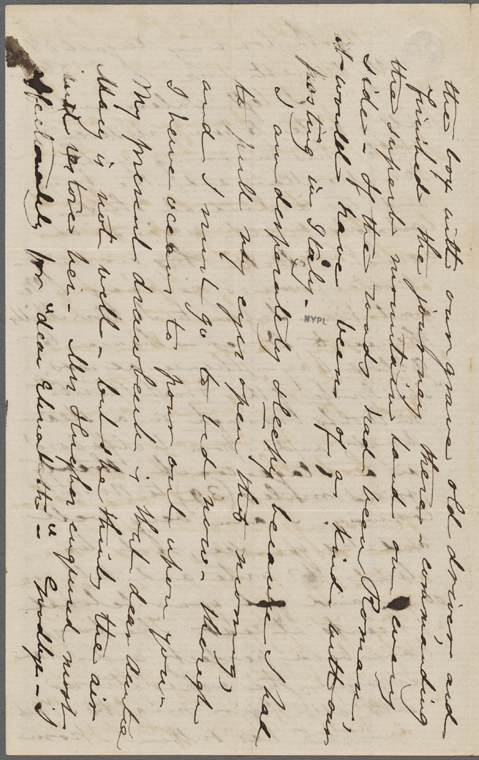 the box with our grave old driver, and
finished the journey there - commanding
the superb mountain land on every
side - If the woods had been Roman,
it would have been of a kind with our
posting in Italy -
NYPL
I am desperately sleepy because I had
to pull my eyes open this morning,
and I must go to bed now - though
I have oceans to pour out upon you -
My present drawback is that dear Aunt
Mary is not well - but she thinks the air
will restore her - Mrs Hughes enquired most
affectionately for "dear Elizabeth" - Goodbye -